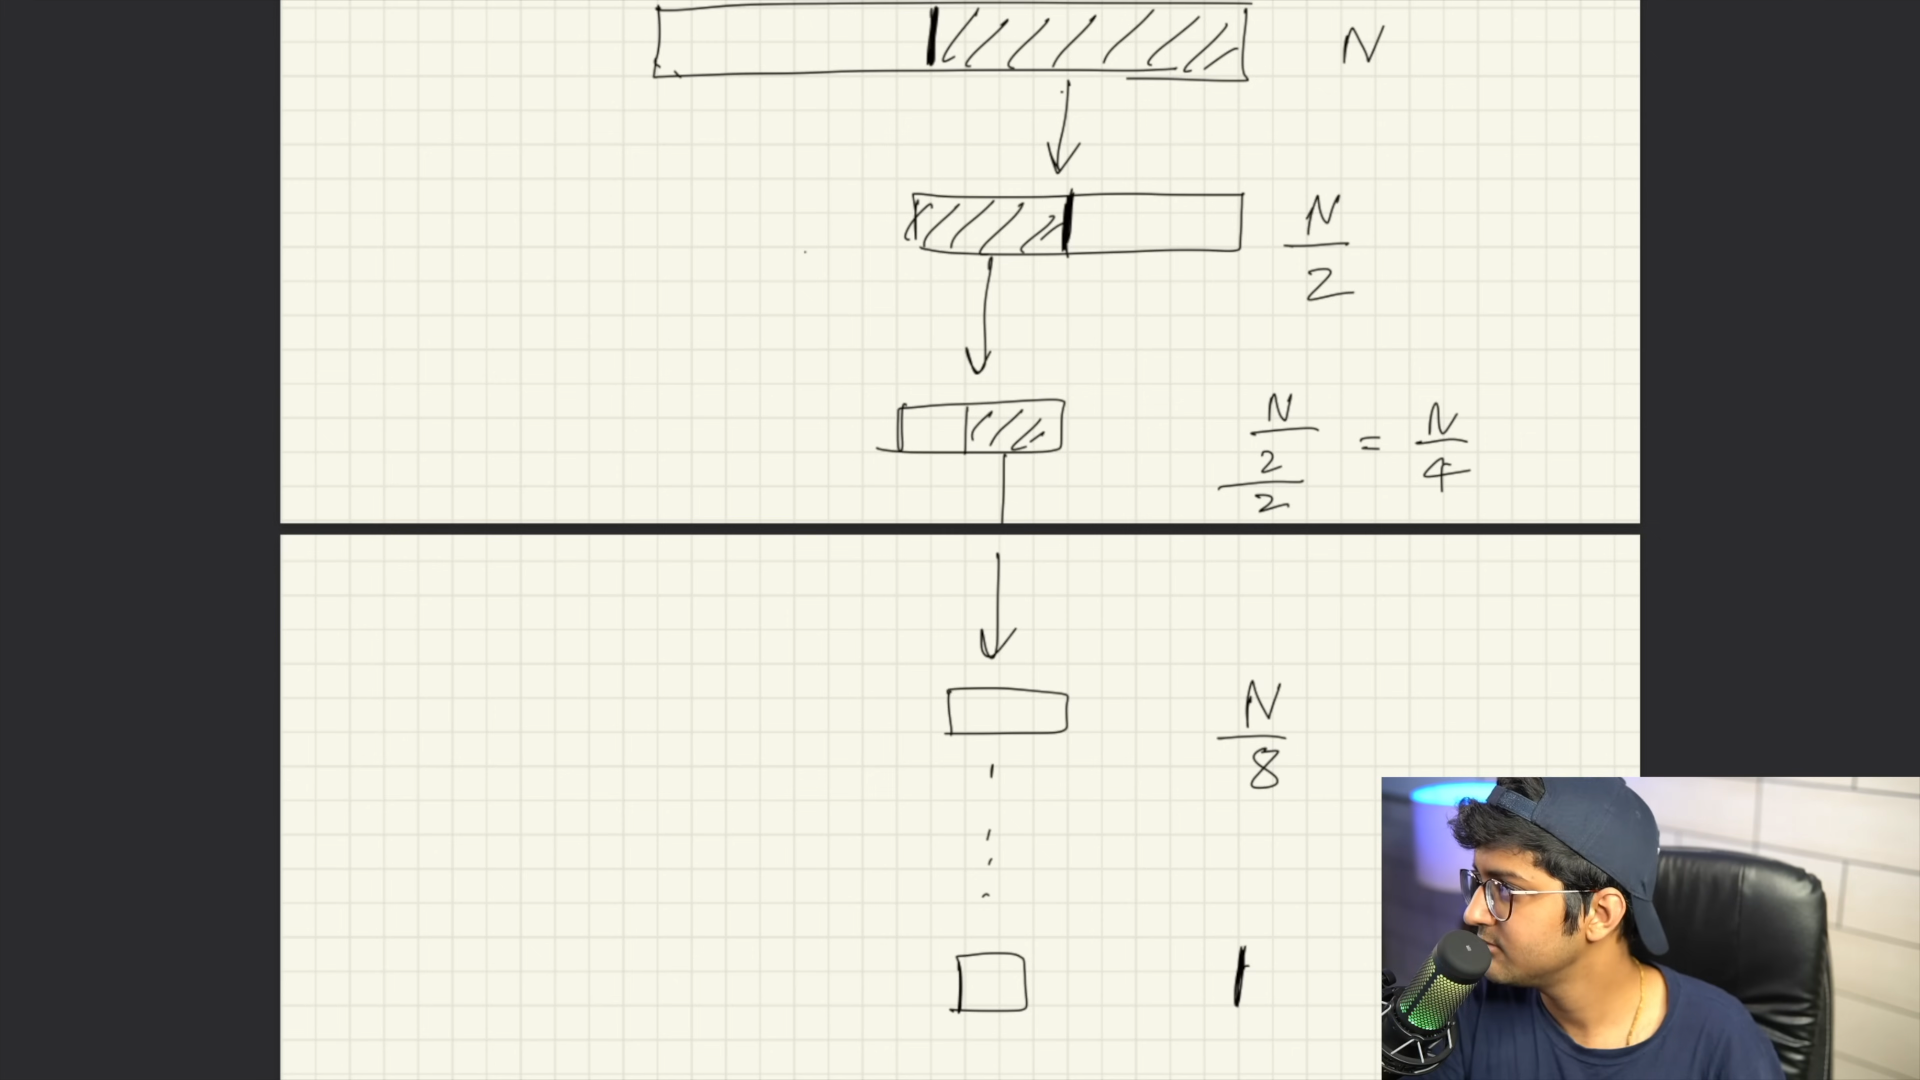 N
N
2
N
2
2
= N
4
N
8
1